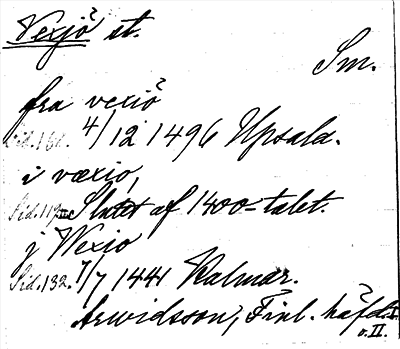 Vexjö st.
Sm.
fra vexiö
Sid. 161. 4/12 1496 Upsala.
i væxio,
Sid. 119 Slutet af 1400-talet.
j Wexio
Sid. 132. 7/7 1441 Kalmar.
Arwidsson, Finl. häfd. I.
o. II.